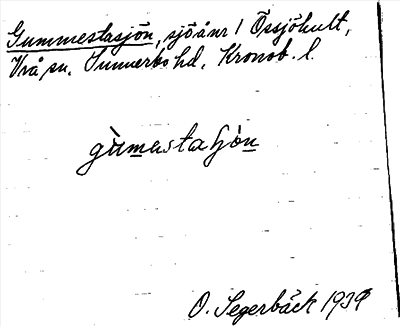 Gummestasjön, sjöånr 1 Össjöhult,
Vrå sn. Sunnerbo hd. Kronob. l.
gùmestaʃjön
O. Segerbäck 1939